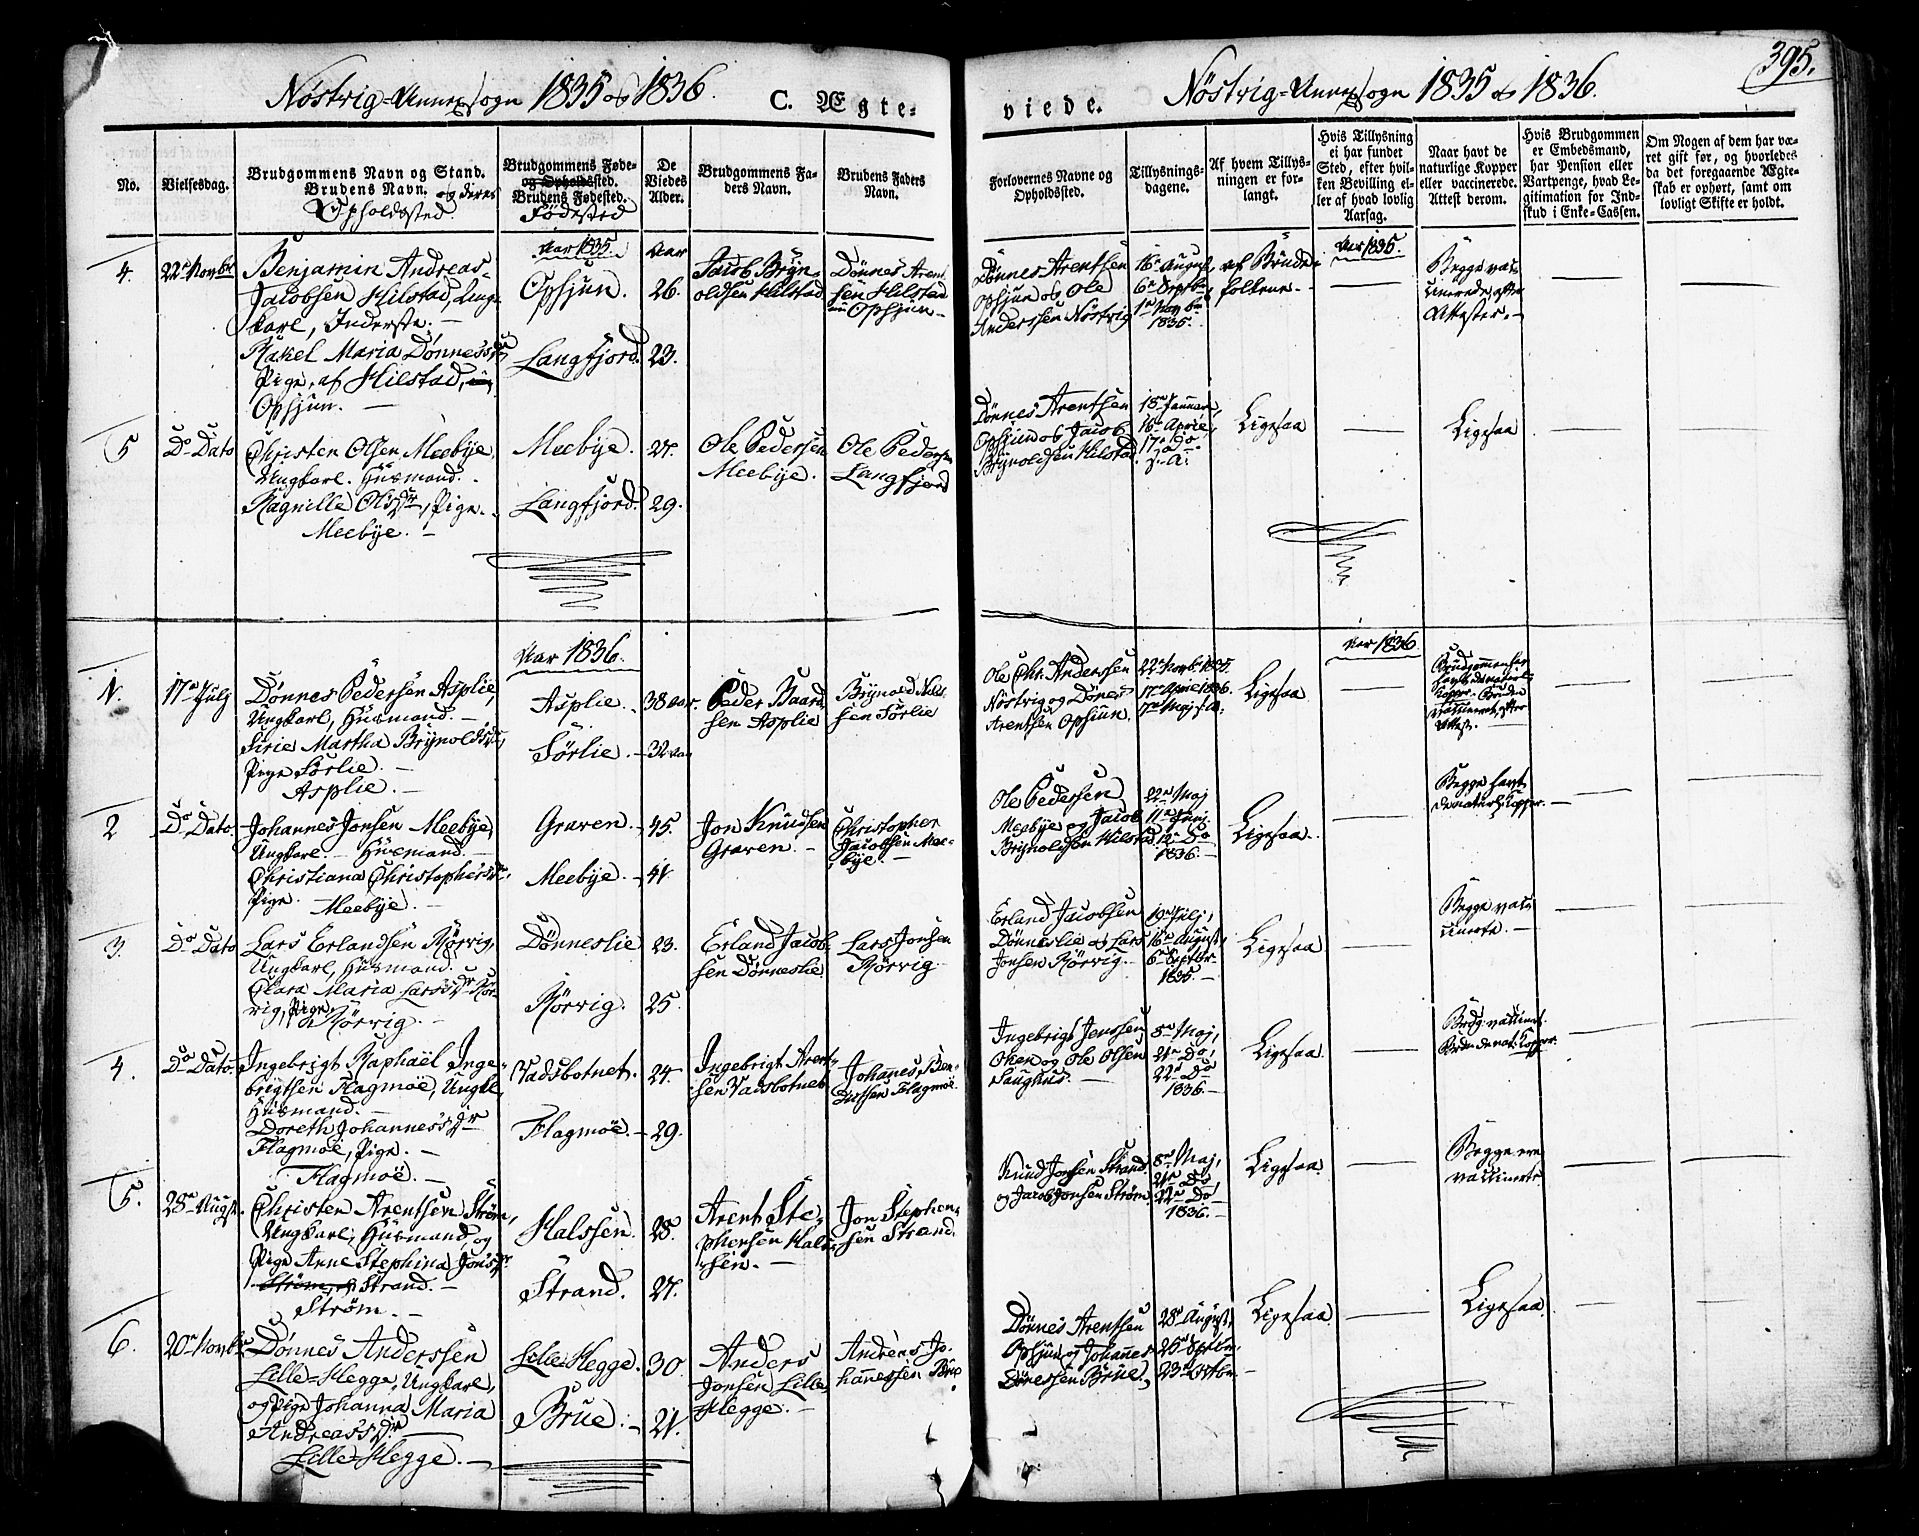 395.
Nöstrig=Annexsogn 1835 og 1836.
C. Ægte-
viede.
Nöstrig=Annexsogn 1835 og 1836.
No.
Vielsesdag.
Brudgommens Navn og Stand.
Brudens Navn. og deres
Opholdssted
Brudgommens Føde-
og Opholdssted.
Brudens Fødested.
Födested
De
Viedes
Alder.
Brudgommens Fa-
ders Navn.
Brudens Faders
Navn.
Forlovernes Navne og
Opholdssted.
Tillysnings-
dagene.
Af hvem Tillys-
ningen er for-
langt.
Hvis Tillysning
ei har fundet
Sted, efter hvil-
ken Bevilling el-
ler af hvad lovlig
Aarsag.
Naar havt de
naturlige Kopper
eller vaccinerede.
Attest derom.
Hvis Brudgommen
er Embedsmand,
har Pension eller
Vartpenge, hvad Le-
gitimation for Ind-
skud i Enke-Cassen.
Om Nogen af dem har væ-
ret gift før, og hvorledes
da det foregaaende Ægte-
skab er ophørt, samt om
lovligt Skifte er holdt.
Aar 1835.
Aar 1835.
4.
22de Novbr
Benjamin Andreas
Jacobsen Hilstad, Ung-
karl, Inderste. —
Rakel Maria Dönnesdr
Pige, af Hilstad,
Ophjun. —
Ophjun.
Langfjord.
Aar
26.
23.
Jacob Bryn-
oldsen Hilstad
Dönnes Arent-
sen Hilstad
Ophjun —
Dönnes Arentsen
Ophjun og Ole
Anderssen Nöstrig
16de August,
6te Septbr,
1ste Novbr
1835.
af Brude-
folkene. —
Begge vac-
cinerede, efter
Attester. —
5
Do Dato
Christen Olsen Meebye,
Ungkarl. Husmand. —
Ragnille Olsdr, Pige. —
Meebye. —
Meebye.
Langfjord.
27.
29.
Ole Pedersen
Meebye.
Ole Pedersen
Langfjord
Dönnes Arentsen
Ophjun og Jacob
Brynoldsen Hilstad.
15de Januar,
16de April,
17de Do
s. A.
Ligesaa
Ligesaa
Aar 1836.
Aar 1836.
1.
17de July
Dönnes Pedersen Asplie,
Ungkarl, Husmand. —
Sirie Martha Brynoldsdr,
Pige Sörlie. —
Asplie. —
Asplie.
Sörlie. —
38 Aar.
32 Aar
Peder Baard-
sen Asplie
Brynold Nils-
sen Sörlie
Ole Chr. Anderssen
Nöstrig og Dönes
Arentsen Ophjun.
22de Novbr 1835.
17de April 1836.
Ligesaa
Brudgommen har
Kopper. Bruden
vaccineret, efter
Attest.
2
Do Dato.
Johannes Jonsen Meebye,
Ungkarl. — Husmand. —
Christiana Christophersdr.
Pige. Meebye. —
Graven. —
Meebye. —
45.
41.
Jon Knudsen
Graven. —
Christopher
Jacobsen Mee-
bye. —
Ole Pedersen
Meebye og Jacob
Brynoldsen Hilstad
22de Maj
12te Do
1836. —
Ligesaa.
Begge havt
de naturl. Kopper.
3.
Do Dato
Lars Erlandsen Rörvig,
Ungkarl, Husmand.
Clara Maria Larsdr Rör-
vig, Pige.
Rörvig. —
Dönneslie
Rörvig.
23.
25.
Erland Jacob-
sen Dönneslie
Lars Jonsen
Rörvig.
Erland Jacobsen
Dönneslie og Lars
Jonsen Rörvig. —
19de July,
16de August,
6te Septbr.
1835. —
Ligesaa
Begge vac-
cinerte. —
4.
Do Dato.
Ingebrigt Raphaël Inge-
brigtsen Flagmoë, Ungkl,
Husmand. —
Doreth Johannesdr
Flagmoë, Pige. —
Flagmoë. —
Vadsbotnet.
Flagmoë. —
24.
29.
Ingebrigt Arent-
sen Vadsbotnet
Johannes Ben-
Flagmoë
Ingebrigt Jenssen
og Ole Olsen
Saughus. —
8de Maj,
21de Do,
22de Do
1836. —
Ligesaa
Brudg. vaccinert.
Bruden de nat. Kopper.
5.
28de Augst.
Christen Arentsen Ström,
Ungkarl, Husmand, og
Pige Anne Stephina Jonsdr
Strand. —
Ström. —
Halssen.
Strand.
28.
27.
Arent Ste-
phensen Hals-
sen. —
Jon Stephen-
sen Strand.
Knud Jonsen Strand
og Jacob Jonsen Ström.
8de Maj,
21de Do
22de Do
1836. —
Ligesaa.
Begge ere
vaccinerte.
6.
20de Novbr
Dönnes Anderssen
Lille=Hegge, Ungkarl,
og Pige Johanna Maria
Andreasdr. —
Lille=Hegge. —
Lille=Hegge.
Brue. —
30
21.
Anders
Jonsen Lille
Hegge. —
Andreas Jo-
hannessen Brue.
Dönnes Arentsen
Ophjun og Johannes
Dönessen Brue.
28de August,
25de Septbr,
23de Octbr. —
Ligesaa
Ligesaa.